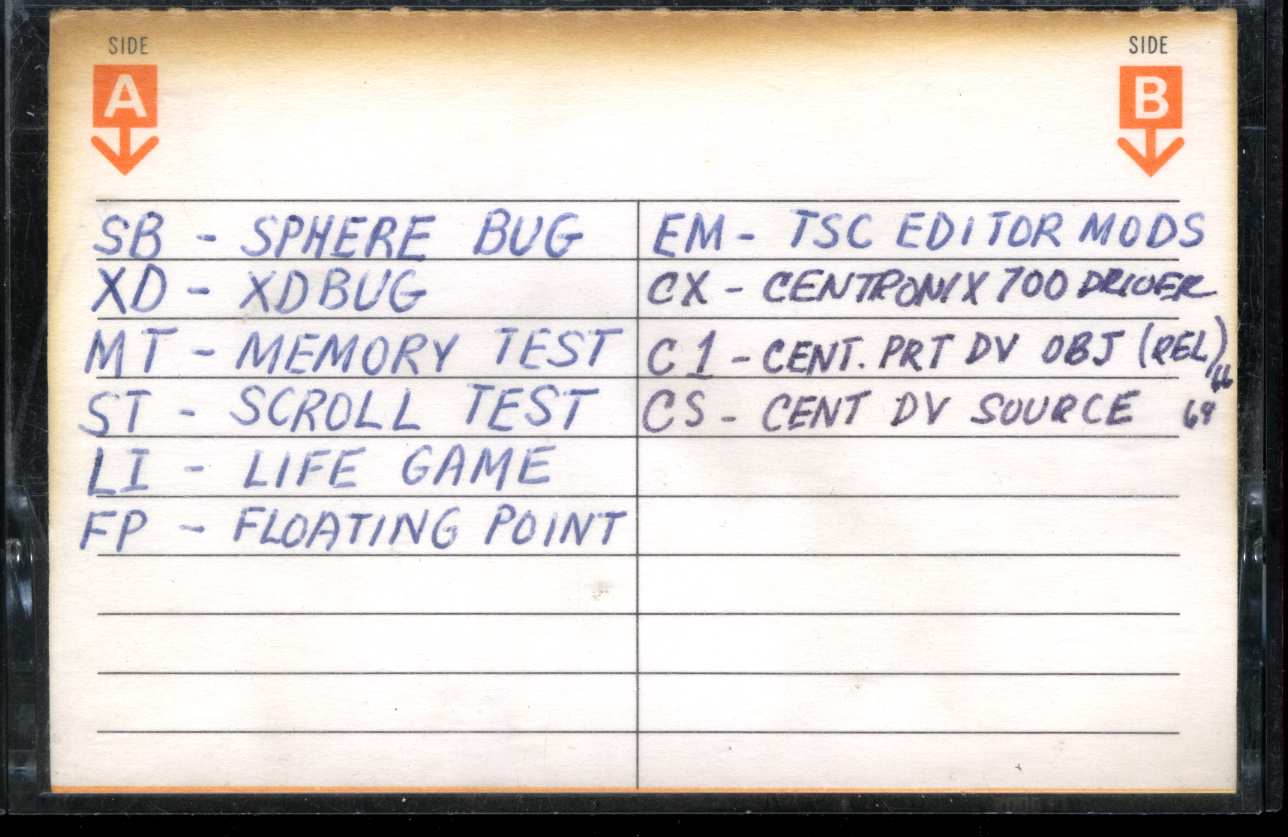 SIDE
A
SB - SPHERE BUG
XD - XDBUG
MT - MEMORY TEST
ST - SCROLL TEST
LI - LIFE GAME
FP - FLOATING POINT
SIDE
B
EM - TSC EDITOR MODS
CX - CENTRONIX 700 DRIVER
C1 - CENT. PRT DV OBJ (REL) 66
CS - CENT DV SOURCE 69